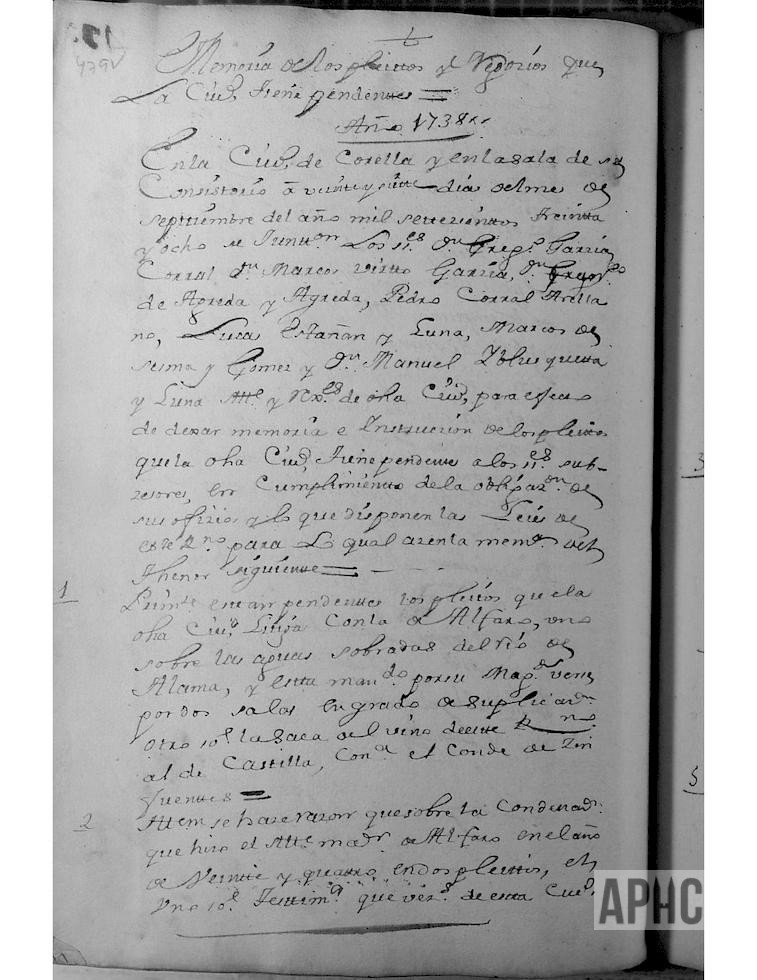 479v
Memoria de los pleittos y Negozios que
La Ciud, tiene pendenttes =
Año 1738
En la Ciud, de Corella y en la sala de su
Consistorio a veinte y siette dia del mes de
septtiembre del año mil settecienttos treintta
y ocho se Junttaron Los ss.es Dn Greg.o Garcia
Corral Dn Marcos virtto Garcia, Dn Greg.o
de Agreda y Agreda, Pedro Corral Arella
no, Lucas Estañan y Luna, Marcos de
sesma y Gomez y Dn Manuel
y Luna Att.e y Rex.es de dha Ciud, para efecto
de dexar memoria e Instrucion de los pleittos
que la dha Ciud, tiene pendentte a los ss.es sub-
zesores, en Cumplimiento de la obligaz.on de
sus ofizios y lo que disponen las Leies de
este R.no para Lo qual asenta mem.a del
thenor siguiente =
1
Prim.te estan pendenttes los pleitos que la
dha Ciud, Litiga Con la de Alfaro, uno
sobre las aguas sobradas del rio de
Alama, y esta man.do por su Mag.d
por dos salas en grado de suplicaz.on
otro sobre la saca del vino de este R.no
al de Castilla, Con.a el Conde de
fuentes =
2
Attem se haze razon que sobre la Condenaz.on
que hizo el Att.e ma.or de Alfaro en el año
de Veinte y quattro, en dos pleittos, el
uno Testtim.o que vez.s de esta Ciud.
APHC